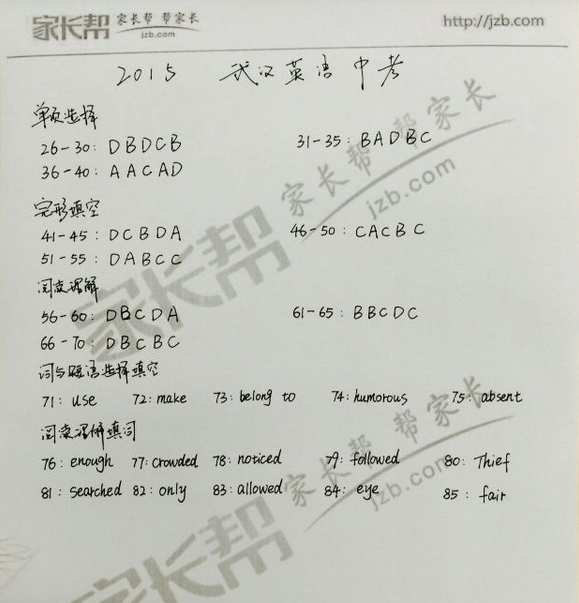 家长帮 家长帮 帮家长 jzb.com http://jzb.com
2015 武汉英语中考
单项选择
26-30: DBDCB 31-35: BADBC
36-40: AACAD
完形填空
41-45: DCBDA 46-50: CACBC
51-55: DABCC
阅读理解
56-60: DBCDA 61-65: BBCDC
66-70: DBCBC
词与短语选择填空
71: use 72: make 73: belong to 74: humorous 75: absent
阅读理解填词
76: enough 77: crowded 78: noticed 79: followed 80: Thief
81: searched 82: only 83: allowed 84: eye 85: fair
家长帮 家长帮 帮家长 jzb.com
家长帮 家长帮 帮家长 jzb.com